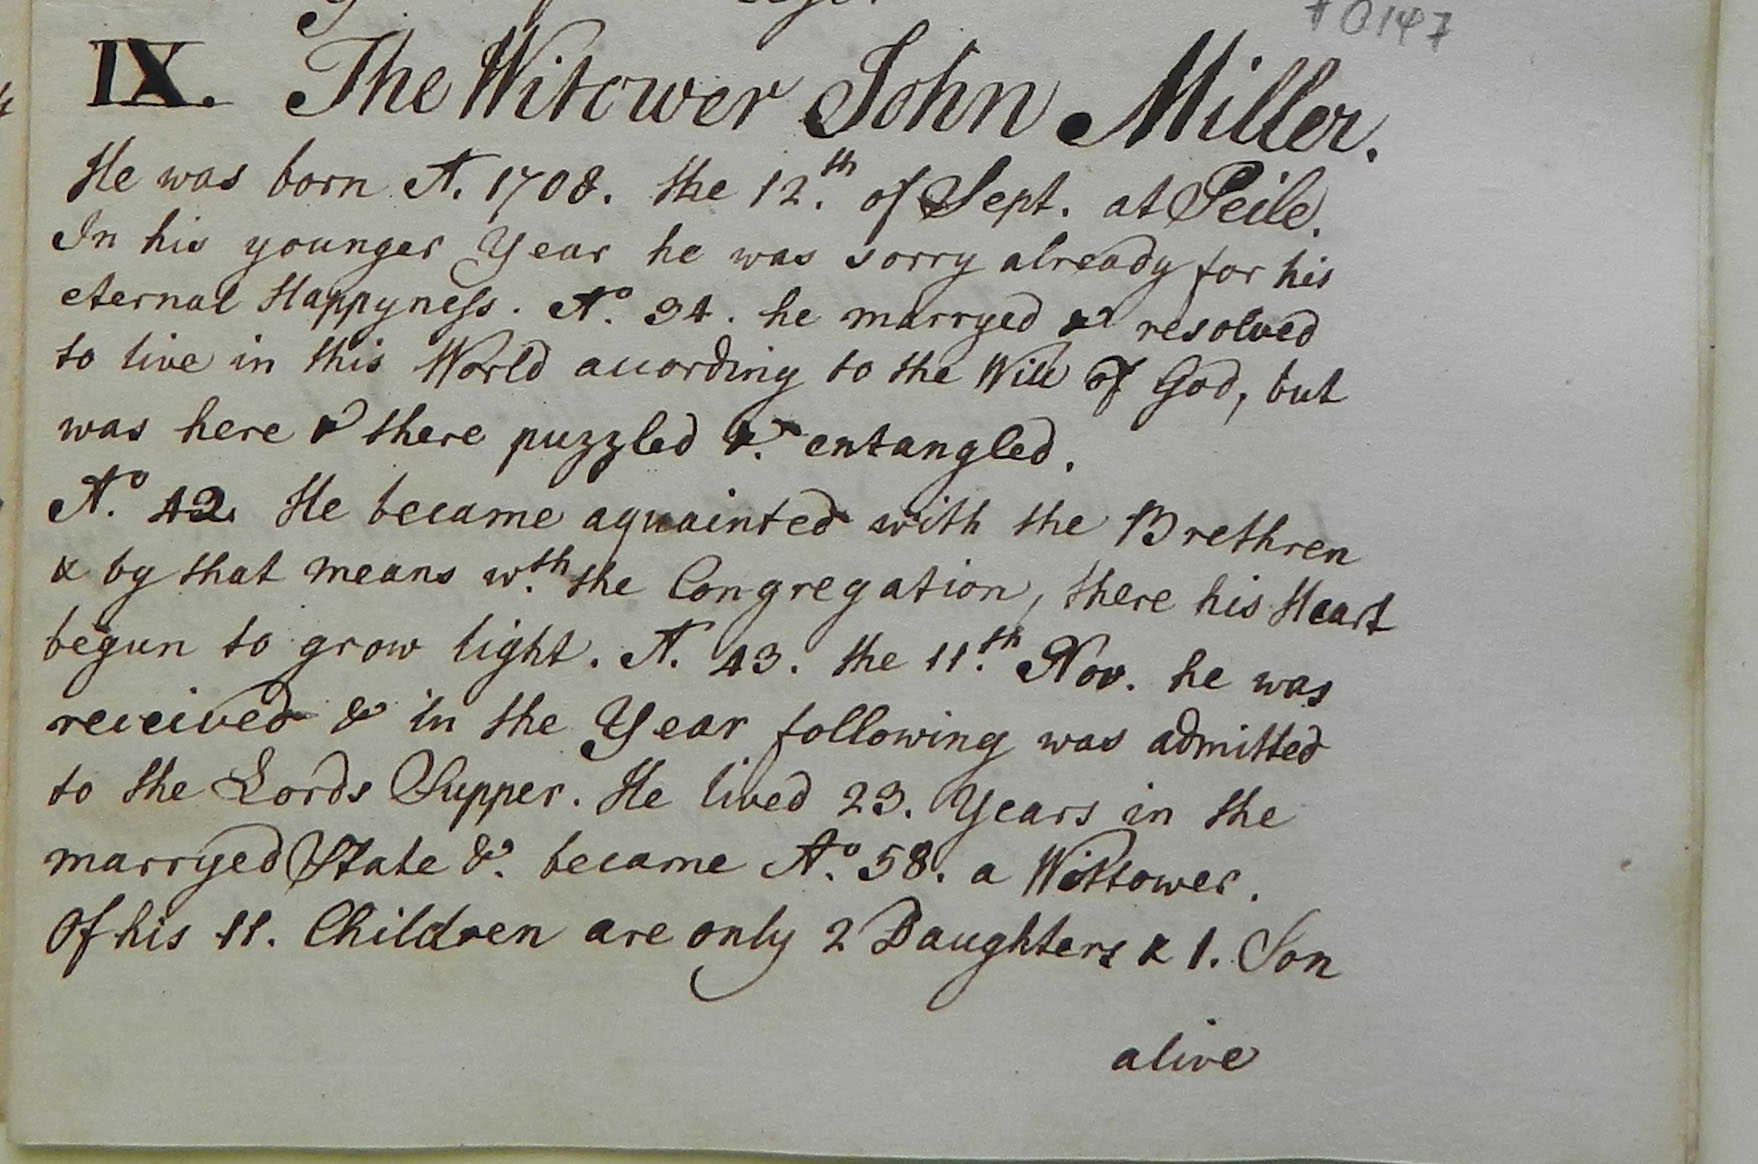 #0147
IX. The Witower John Miller.
He was born A. 1708. the 12.th of Sept. at Peile.
In his younger Year he was sorry already for his
eternal Happyness. Ao. 34. he marryed & resolved
to live in this World according to the Will of God, but
was here & there puzzled &. entangled.
Ao. 42. He became aquainted with the Brethren
& by that means w.th the Congregation, there his Heart
begun to grow light. A. 43. the 11.th Nov. he was
received & in the Year following was admitted
to the Lords Supper. He lived 23. Years in the
marryed State &. became Ao. 58. a Wittower.
Of his 11. Children are only 2 Daughters & 1. Son
alive